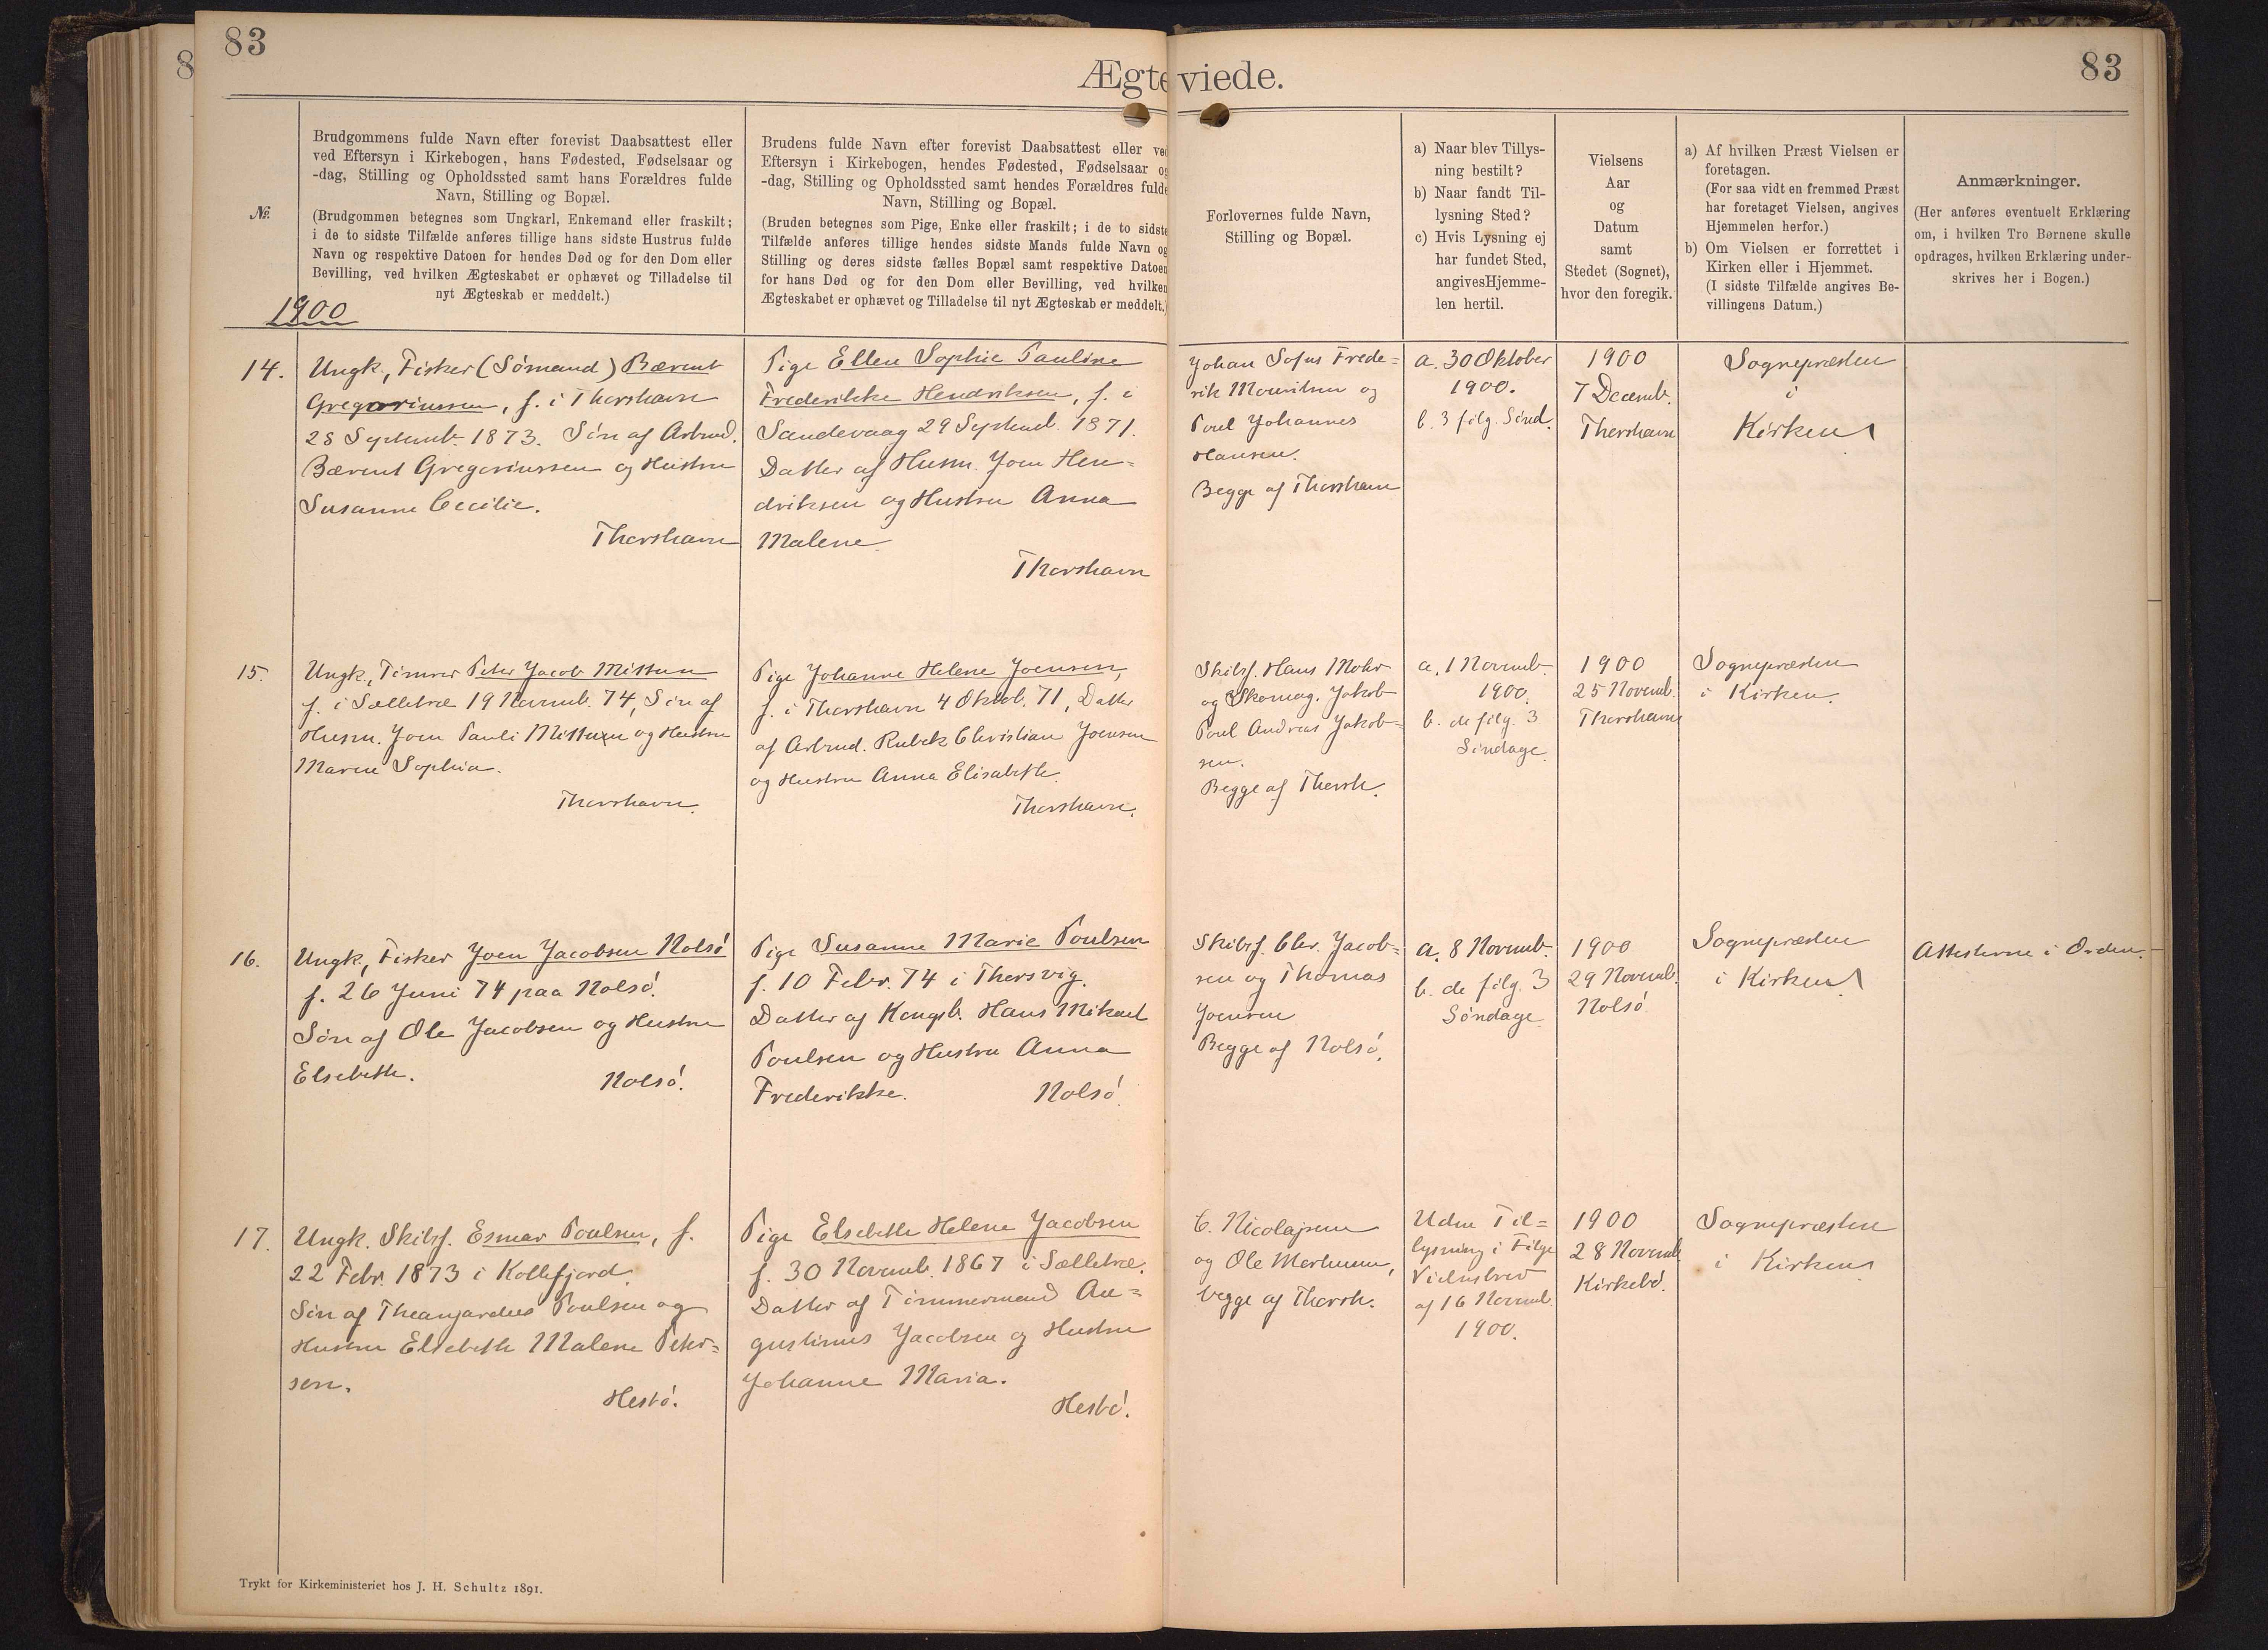 83
83
8
Ægteviede.
№.
Brudgommens fulde Navn efter forevist Daabsattest eller
ved Eftersyn i Kirkebogen, hans Fødested, Fødselsaar og
-dag, Stilling og Opholdssted samt hans Forældres fulde
Navn, Stilling og Bopæl.
(Brudgommen betegnes som Ungkarl, Enkemand eller fraskilt;
i de to sidste Tilfælde anføres tillige hans sidste Hustrus fulde
Navn og respektive Datoen for hendes Død og for den Dom eller
Bevilling, ved hvilken Ægteskabet er ophævet og Tilladelse til
nyt Ægteskab er meddelt.)
Brudens fulde Navn efter forevist Daabsattest eller ved
Eftersyn i Kirkebogen, hendes Fødested, Fødselsaar og
-dag, Stilling og Opholdssted samt hendes Forældres fulde
Navn, Stilling og Bopæl.
(Bruden betegnes som Pige, Enke eller fraskilt; i de to sidste
Tilfælde anføres tillige hendes sidste Mands fulde Navn og
Stilling og deres sidste fælles Bopæl samt respektive Datoen
for hans Død og for den Dom eller Bevilling, ved hvilken
Ægteskabet er ophævet og Tilladelse til nyt Ægteskab er meddelt.)
Forlovernes fulde Navn,
Stilling og Bopæl.
a) Naar blev Tillys-
ning bestilt?
b) Naar fandt Til-
lysning Sted?
c) Hvis Lysning ej
har fundet Sted,
angivesHjemme-
len hertil.
Vielsens
Aar
og
Datum
samt
Stedet (Sognet),
hvor den foregik.
a) Af hvilken Præst Vielsen er
foretagen.
(For saa vidt en fremmed Præst
har foretaget Vielsen, angives
Hjemmelen herfor.)
b) Om Vielsen er forrettet i
Kirken eller i Hjemmet.
(I sidste Tilfælde angives Be-
villingens Datum.)
Anmærkninger.
(Her anføres eventuelt Erklæring
om, i hvilken Tro Børnene skulle
opdrages, hvilken Erklæring under-
skrives her i Bogen.)
1900
14.
Ungk., Fisker (Sømand) Bærent
Gregoriussen, f. i Thorshavn
28 Septemb. 1873. Søn af Arbmd.
Bærent Gregoriussen og Hustru
Susanne Cecilie.
Thorshavn
Pige Ellen Sophie Pauline
Frederikke Hendriksen, f. i
Sandevaag 29 Septemb. 1871.
Datter af Husm. Joen Hen=
driksen og Hustru Anna
Malene.
Thorshavn
Johan Sofus Frede=
rik Mouritsen og
Poul Johannes
Hansen.
Begge af Thorshavn
a. 30 Oktober
1900.
b. 3 følg. Sønd.
1900
7 Decemb.
Thorshavn
Sognepræsten
i
Kirken
15.
Ungk., Tømrer Peter Jacob Mittun
f. i Selletræ 19 Novemb. 74, Søn af
Husm. Joen Pauli Mittun og Hustru
Maren Sophia.
Thorshavn.
Pige Johanne Helene Joensen,
f. i Thorshavn 4 Oktob. 71, Datter
af Arbmd. Rubek Christian Joensen
og Hustru Anna Elisabeth.
Thorshavn.
Skibsf. Hans Mohr
og Skomag. Jakob
Poul Andreas Jakob=
sen.
Begge af Thorsh.
a. 1 Novemb.
1900.
b. de følg. 3
Søndage.
1900
25 Novemb.
Thorshavn
Sognepræsten
i Kirken.
16.
Ungk., Fisker Joen Jacobsen Nolsø
f. 26 Juni 74 paa Nolsø.
Søn af Ole Jacobsen og Hustru
Elsebeth.
Nolsø.
Pige Susanne Marie Poulsen
f. 10 Febr. 74 i Thorsvig.
Datter af Kongsb. Hans Mikael
Poulsen og Hustru Anna
Frederikke.
Nolsø.
Skibsf. Chr. Jacob=
sen og Thomas
Joensen
Begge af Nolsø.
a. 8 Novemb.
b. de følg. 3
Søndage.
1900
29 Novemb.
Nolsø
Sognepræsten
i Kirken.
Attesterne i Orden.
17.
Ungk. Skibsf. Esmar Poulsen, f.
22 Febr. 1873 i Kollefjord.
Søn af Poulsen og
Hustru Elsebeth Malene Peter=
sen.
Hestø.
Pige Elsebeth Helene Jacobsen
f. 30 Novemb. 1867 i Selletræ.
Datter af Tømmermand Au=
gustinus Jacobsen og Hustru
Johanne Maria.
Hestø.
C. Nicolajsen
og Ole Mortensen,
begge af Thorsh.
Uden Til=
lysning i Følge
Vielsesbrev
af 16 Novemb.
1900.
1900
28 Novemb.
Kirkebø.
Sognepræsten
i Kirken
Trykt for Kirkeministeriet hos J. H. Schultz 1891.